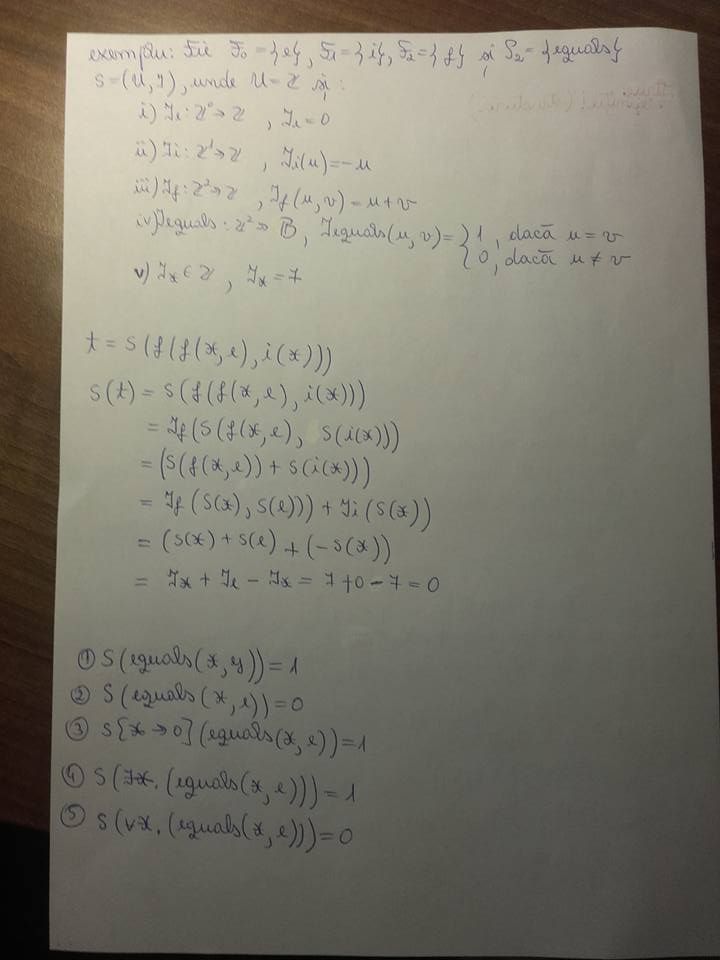 exemplu: Fie F₀ = {e}, F₁ = {i}, F₂ = {f} și P₂ = {equals}
S = (U, I), unde U = ℤ și:
i) Ie : ℤ⁰ → ℤ , Ie = 0
ii) Ii : ℤ¹ → ℤ , Ii(u) = -u
iii) If : ℤ² → ℤ , If(u, v) = u + v
iv) Iequals : ℤ² → B , Iequals(u, v) = { 1 , dacă u = v
{ 0, dacă u ≠ v
v) Ix ∈ ℤ , Ix = 7
t = S(f(f(x, e), i(x)))
S(t) = S(f(f(x, e), i(x)))
= If(S(f(x, e), S(i(x)))
= (S(f(x, e)) + S(i(x)))
= If(S(x), S(e))) + Ii(S(x))
= (S(x) + S(e) + (-S(x))
= Ix + Ie - Ix = 7 + 0 - 7 = 0
① S(equals(x, y)) = 1
② S(equals(x, e)) = 0
③ S{x → 0}(equals(x, e)) = 1
④ S(∃x. (equals(x, e))) = 1
⑤ S(∀x. (equals(x, e))) = 0